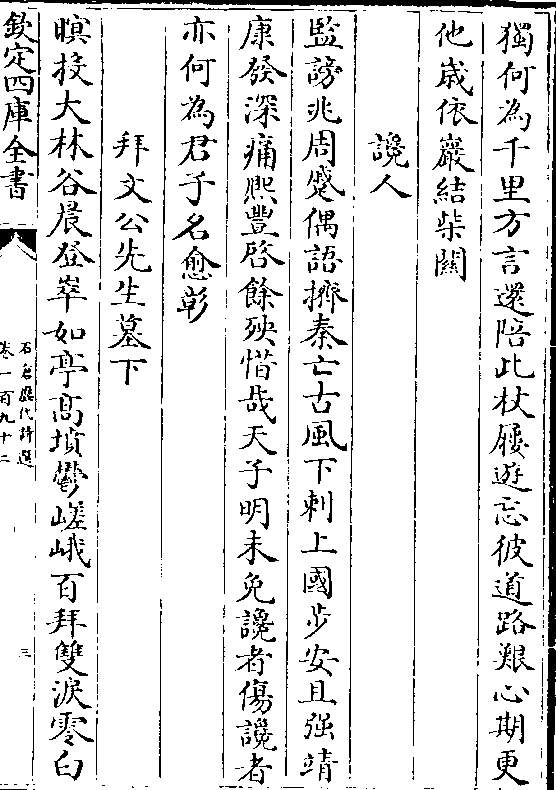 獨何為千里方言還陪此杖屨遊忘彼道路艱心期更
他嵗依巖結柴關
讒人
監謗兆周蹙偶語擠秦亡古風下刺上國步安且强靖
康發深痛熈豐啓餘殃惜哉天子明未免讒者傷讒者
亦何為君子名愈彰
拜文公先生墓下
暝投大林谷晨登崒如亭髙墳鬱嵯峨百拜雙淚零白
欽定四庫全書
石倉歴代詩選
卷一百九十二
三